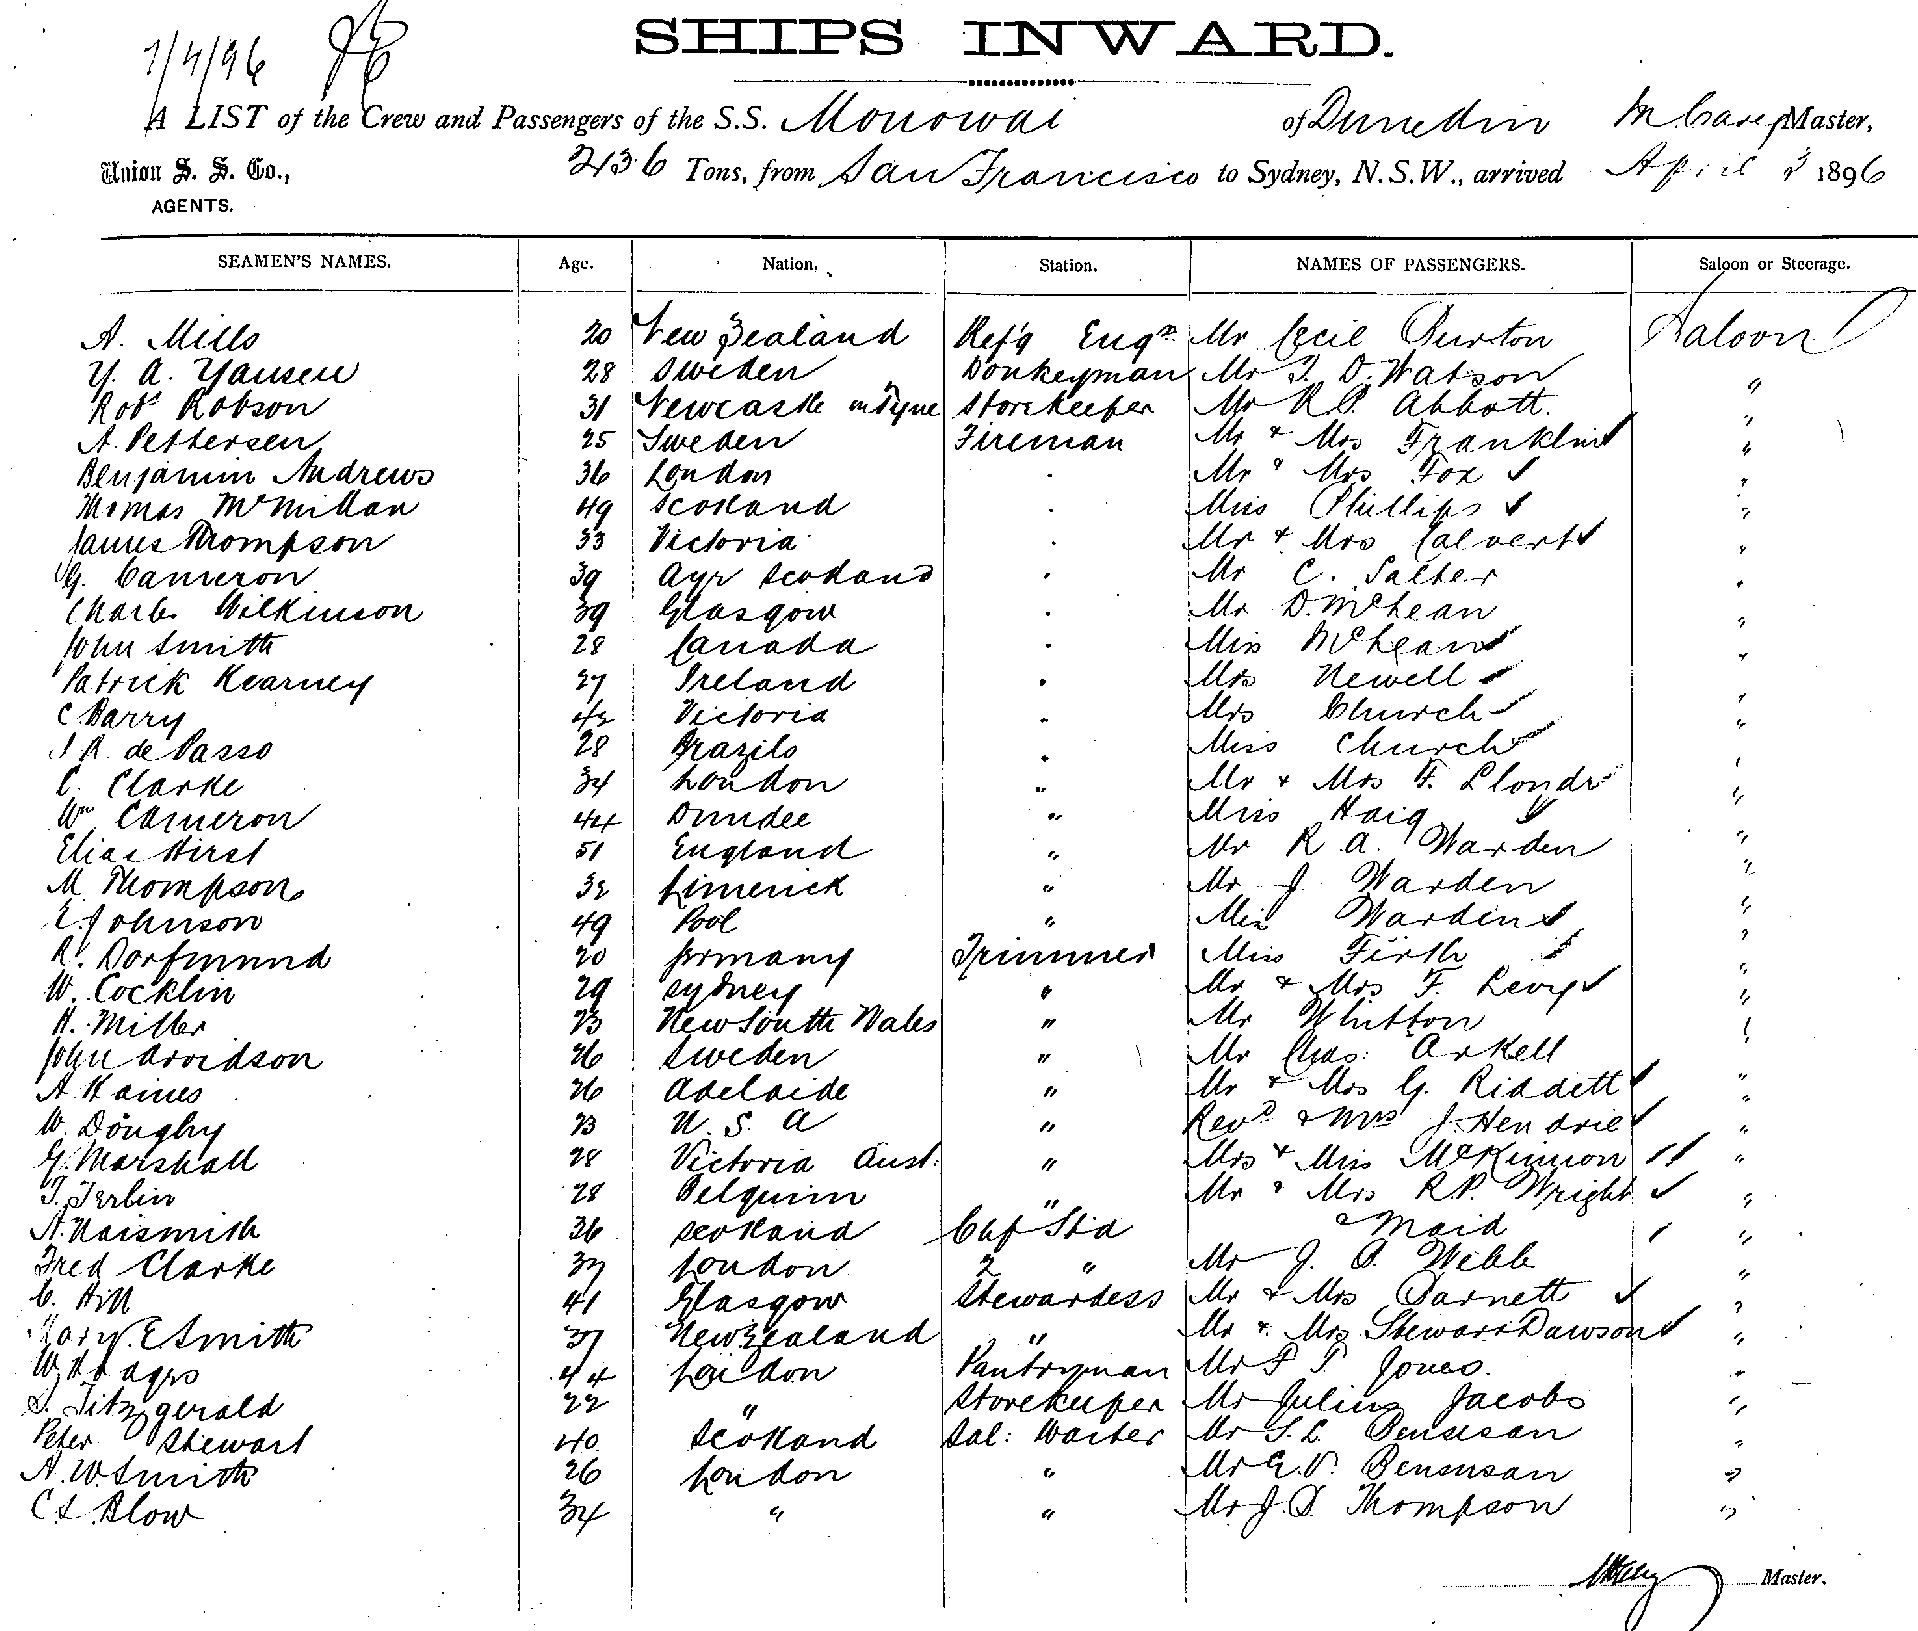 7/4/96
SHIPS INWARD.
A LIST of the Crew and Passengers of the S.S. Monowai of Dunedin M. Carey Master,
Union S. S. Co., 2136 Tons, from San Francisco to Sydney, N.S.W., arrived April 3 1896
AGENTS.
SEAMEN'S NAMES. Age. Nation. Station. NAMES OF PASSENGERS. Saloon or Steerage.
A. Mills 20 New Zealand Ref'g Engr Mr Cecil Burton Saloon
Y. A. Yansen 28 Sweden Donkeyman Mr T. D. Watson "
Robt Robson 31 Newcastle on Tyne Storekeeper Mr R P. Abbott. "
A. Pettersen 25 Sweden Fireman Mr & Mrs Franklin "
Benjamin Andrews 36 London . Mr & Mrs Fox "
Thomas McMillan 49 Scotland . Miss Phillips "
James Thompson 33 Victoria . Mr & Mrs Calvert "
G. Cameron 39 Ayr Scotland . Mr C. Salter "
Charles Wilkinson 39 Glasgow . Mr D. McLean "
John Smith 28 Canada . Miss McLean "
Patrick Kearney 27 Ireland . Mrs Newell "
C Barry 42 Victoria . Mrs Church "
J R. de Passo 28 Brazils . Miss Church "
C. Clarke 34 London " Mr & Mrs F. "
Wm Cameron 44 Dundee " Miss Haig "
Elias Hirst 51 England " Mr R. A. Warden "
M. Thompson 32 Limerick " Mr J Warden "
E. Johnson 49 Pool " Miss Warden "
R. Dorfmund 20 Germany Trimmer Miss Firth "
W. Cocklin 29 Sydney " Mr & Mrs F. Levy "
H. Miller 23 New South Wales " Mr Whitton "
John Arvidson 26 Sweden " Mr Chas: Arkell "
A Haines 26 Adelaide " Mr & Mrs G. Riddett "
W. 23 U. S. A " Revd & Mrs J. Hendrie "
G. Marshall 28 Victoria Aust: " Mrs & Miss McKinnon "
T. Terlin 28 Belguim " Mr & Mrs R.P. Wright "
A. Naismith 36 Scotland Chf Std & Maid "
Fred Clarke 37 London 2 " Mr J. A. Webb "
C. Hill 41 Glasgow Stewardess Mr & Mrs Barnett "
Mary E Smith 37 New Zealand " Mr & Mrs Stewart Dawson "
W 44 London Pantryman Mr F T Jones. "
S. Fitzgerald 22 " Storekeeper Mr Julius Jacobs "
Peter Stewart 40 Scotland Sal: Waiter Mr S. L. Bensusan "
A. W. Smith 26 London " Mr E. V. Bensusan "
C S. Blow 34 " " Mr J. D. Thompson "
Master.